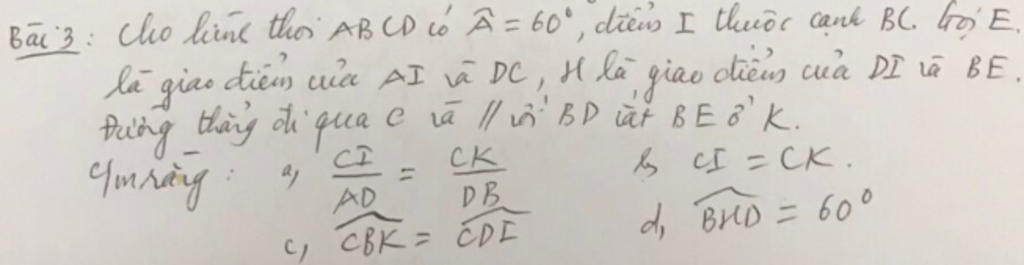 Bài 3: Cho hình thoi ABCD có Â = 60°, điểm I thuộc cạnh BC. Gọi E.
là giao điểm của AI và DC, H là giao điểm của DI và BE.
Đường thẳng đi qua C và // với BD cắt BE ở K.
C/m rằng: a, CI/AD = CK/DB b, CI = CK.
c, \widehat{CBK} = \widehat{CDI} d, \widehat{BHD} = 60°